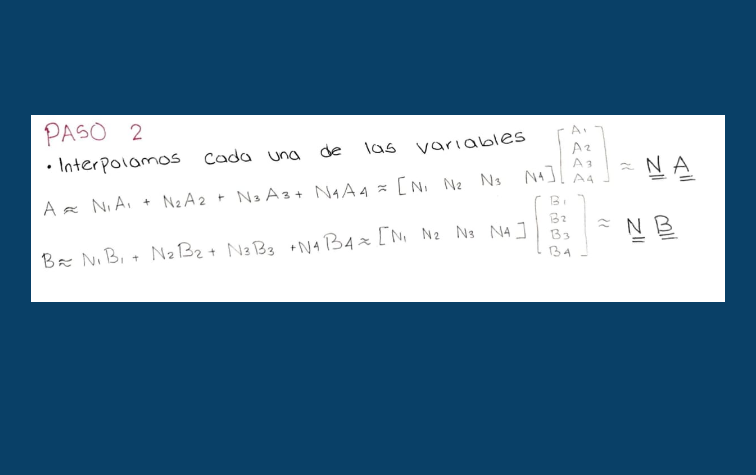 PASO 2
• Interpolamos cada una de las variables
A ≈ N₁A₁ + N₂A₂ + N₃A₃ + N₄A₄ ≈ [N₁ N₂ N₃ N₄] [A₁ A₂ A₃ A₄] ≈ N A
B ≈ N₁B₁ + N₂B₂ + N₃B₃ + N₄B₄ ≈ [N₁ N₂ N₃ N₄] [B₁ B₂ B₃ B₄] ≈ N B